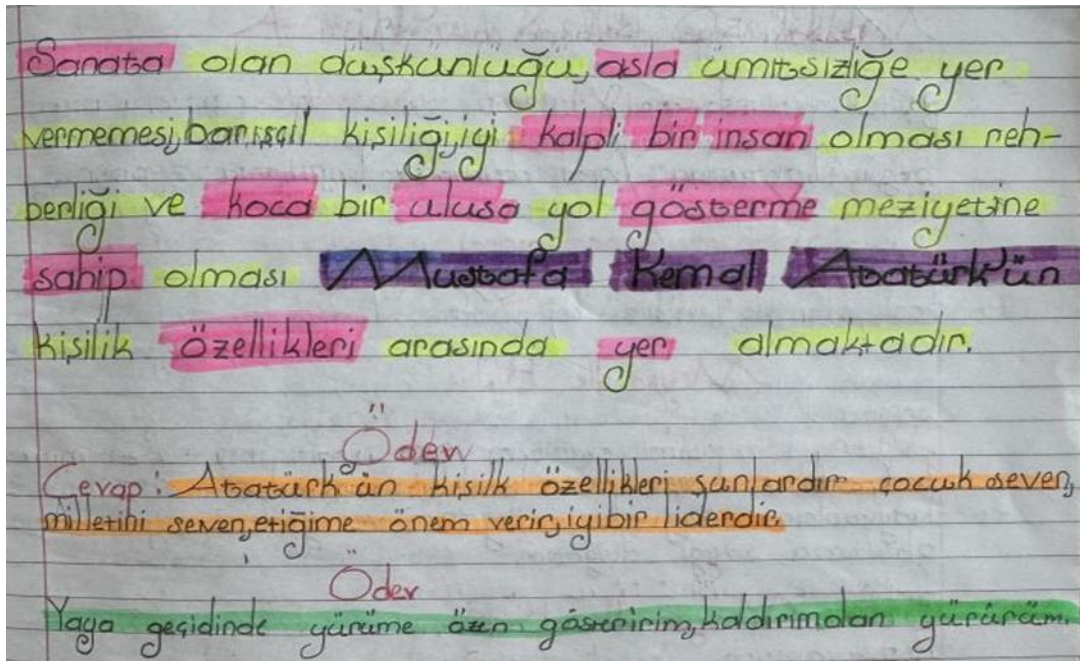 Sanata olan düşkünlüğü, asla ümitsizliğe yer
vermemesi, barışçıl kişiliği, iyi kalpli bir insan olması reh-
berliği ve koca bir ulusa yol gösterme meziyetine
sahip olması Mustafa Kemal Atatürk'ün
kişilik özellikleri arasında yer almaktadır.
Ödev
Cevap: Atatürk'ün kişilk özellikleri şunlardır çocuk seven,
milletini seven, etiğime önem verir, iyi bir liderdir.
Ödev
Yaya geçidinde yürüme özen gösteririm, kaldırımdan yürürüm.